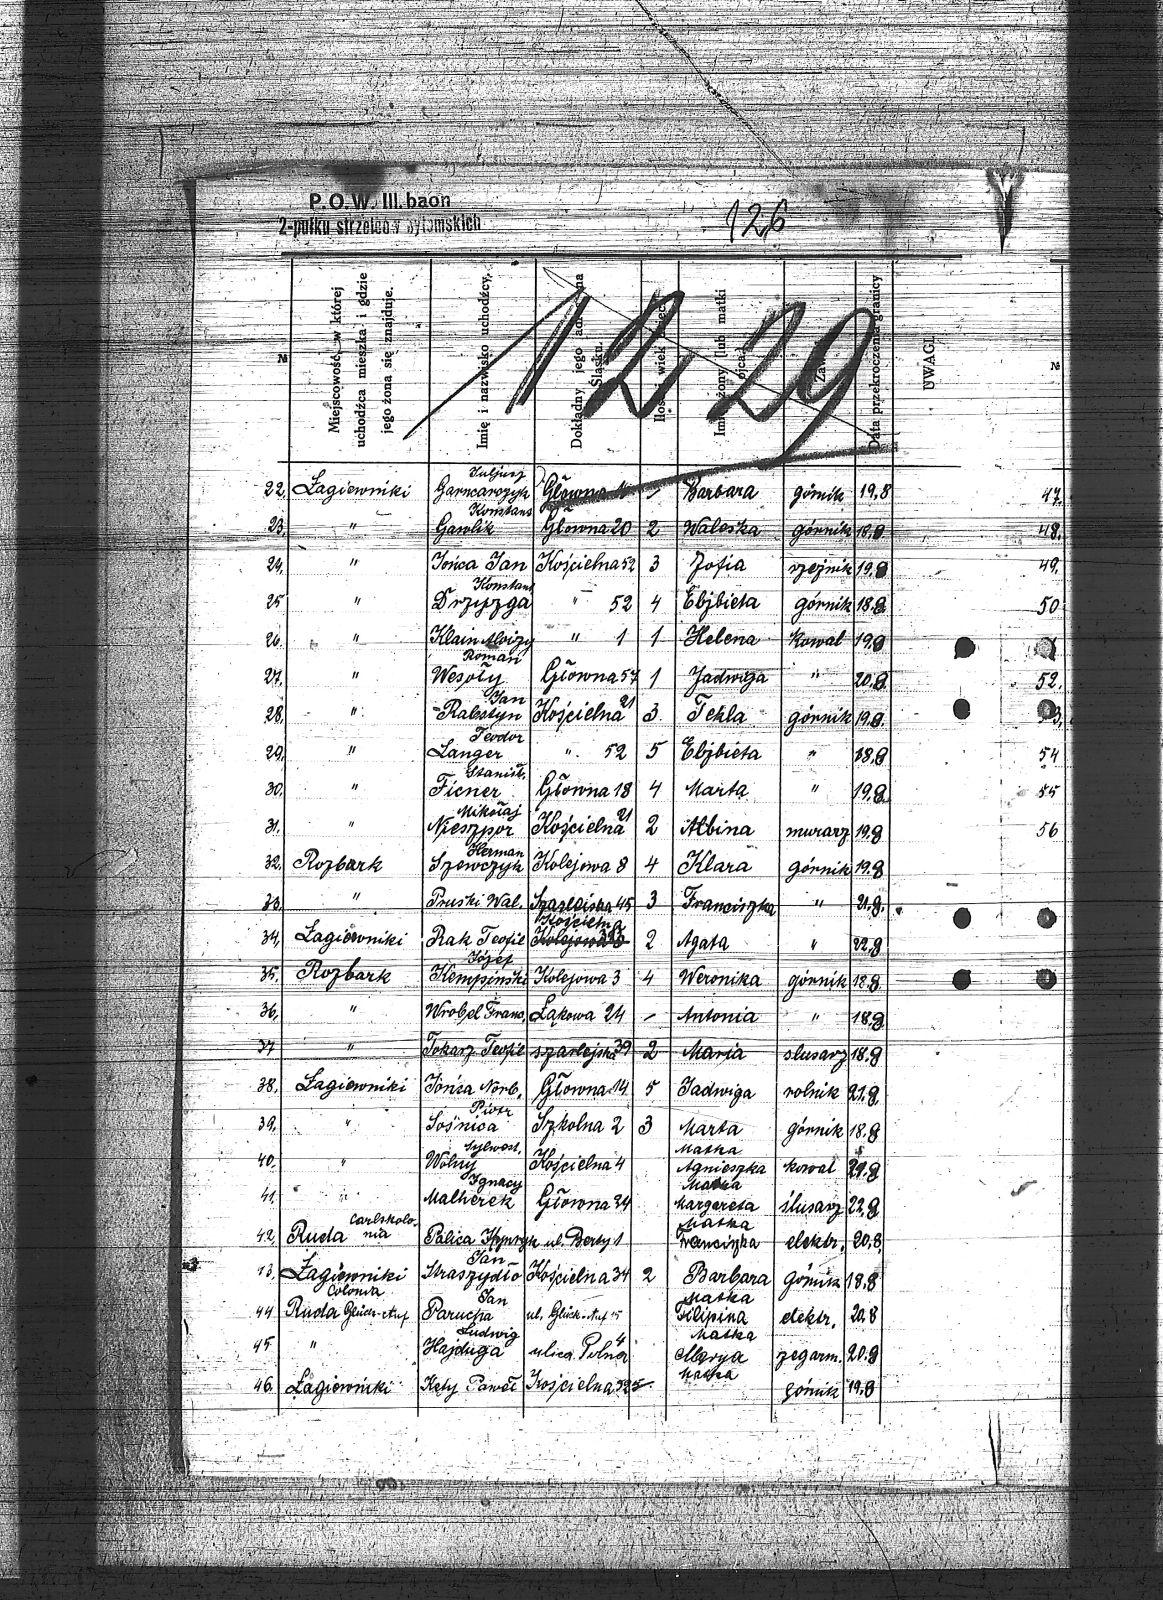 P.O.W. III. baon
2-pułku strzelców bytomskich
126
1229
№
Miejscowość, w której uchodźca mieszka i gdzie jego żona się znajduje.
Imię i nazwisko uchodźcy.
Dokładny jego na Śląsku.
wiek
żony lub matki
Data przekroczenia granicy
UWAGI
№
22. Łagiewniki Juljusz Garncarczyk Główna – Barbara górnik 19.8 47.
23. " Konstans Gawlik Główna 20 2 Waleska górnik 18.8 48.
24. " Jońca Jan Kościelna 52 3 Zofia rzeźnik 19.8 49.
25 " Konstans Drzyzga " 52 4 Elżbieta górnik 18.8 50
26. " Klain Aloizy " 1 1 Helena kowal 19.8
27. " Roman Wesoły Główna 57 1 Jadwiga " 20.8 52.
28. " Jan Rabstyn Kościelna 21 3. Tekla górnik 19.8 53.
29. " Teodor Langer " 52 5 Elżbieta " 18.8 54
30. " Stanisł. Ficner Główna 18 4 Marta " 19.8 55
31. " Mikołaj Nieszpor Kościelna 21 2 Albina murarz 19.8 56
32. Rozbark Herman Szewczyk Kolejowa 8 4 Klara górnik 19.8
33. " Pruski Wal. 45 3 Franciszka " 21.8
34. Łagiewniki Rak Teofil Kościelna 2 Agata " 22.8
35. Rozbark Józef Kempiński Kolejowa 3 4 Weronika górnik 18.8
36. " Wrobel Franc. Łąkowa 24 – Antonia " 18.8
37 " Tokarz Teofil szarlejska 39 2 Maria slusarz 18.8
38. Łagiewniki Jońca Norb. Główna 14 5 Jadwiga rolnik 21.8
39. " Piotr Sośnica Szkolna 2 3 Marta górnik 18.8
40. " Sylwest. Wolny Kościelna 4 Matka Agnieszka kowal 21.8
41. " Ignacy Malherek Główna 34 Matka Margereta ślusarz 22.8
42. Ruda Carlskolonia Palica ul. Berty 1 Matka Franciszka elektr. 20.8
43. Łagiewniki Jan Straszydło Kościelna 34 2 Barbara górnik 18.8
44 Ruda Colonia Glück-Auf Jan Parucha ul. Glück-Auf 15 Matka Filipina elektr. 20.8
45 " Ludwig Hajduga ulica Polna 4 Matka Marya zegarm. 20.8
46. Łagiewniki Kęty Paweł Kościelna Matka górnik 19.8